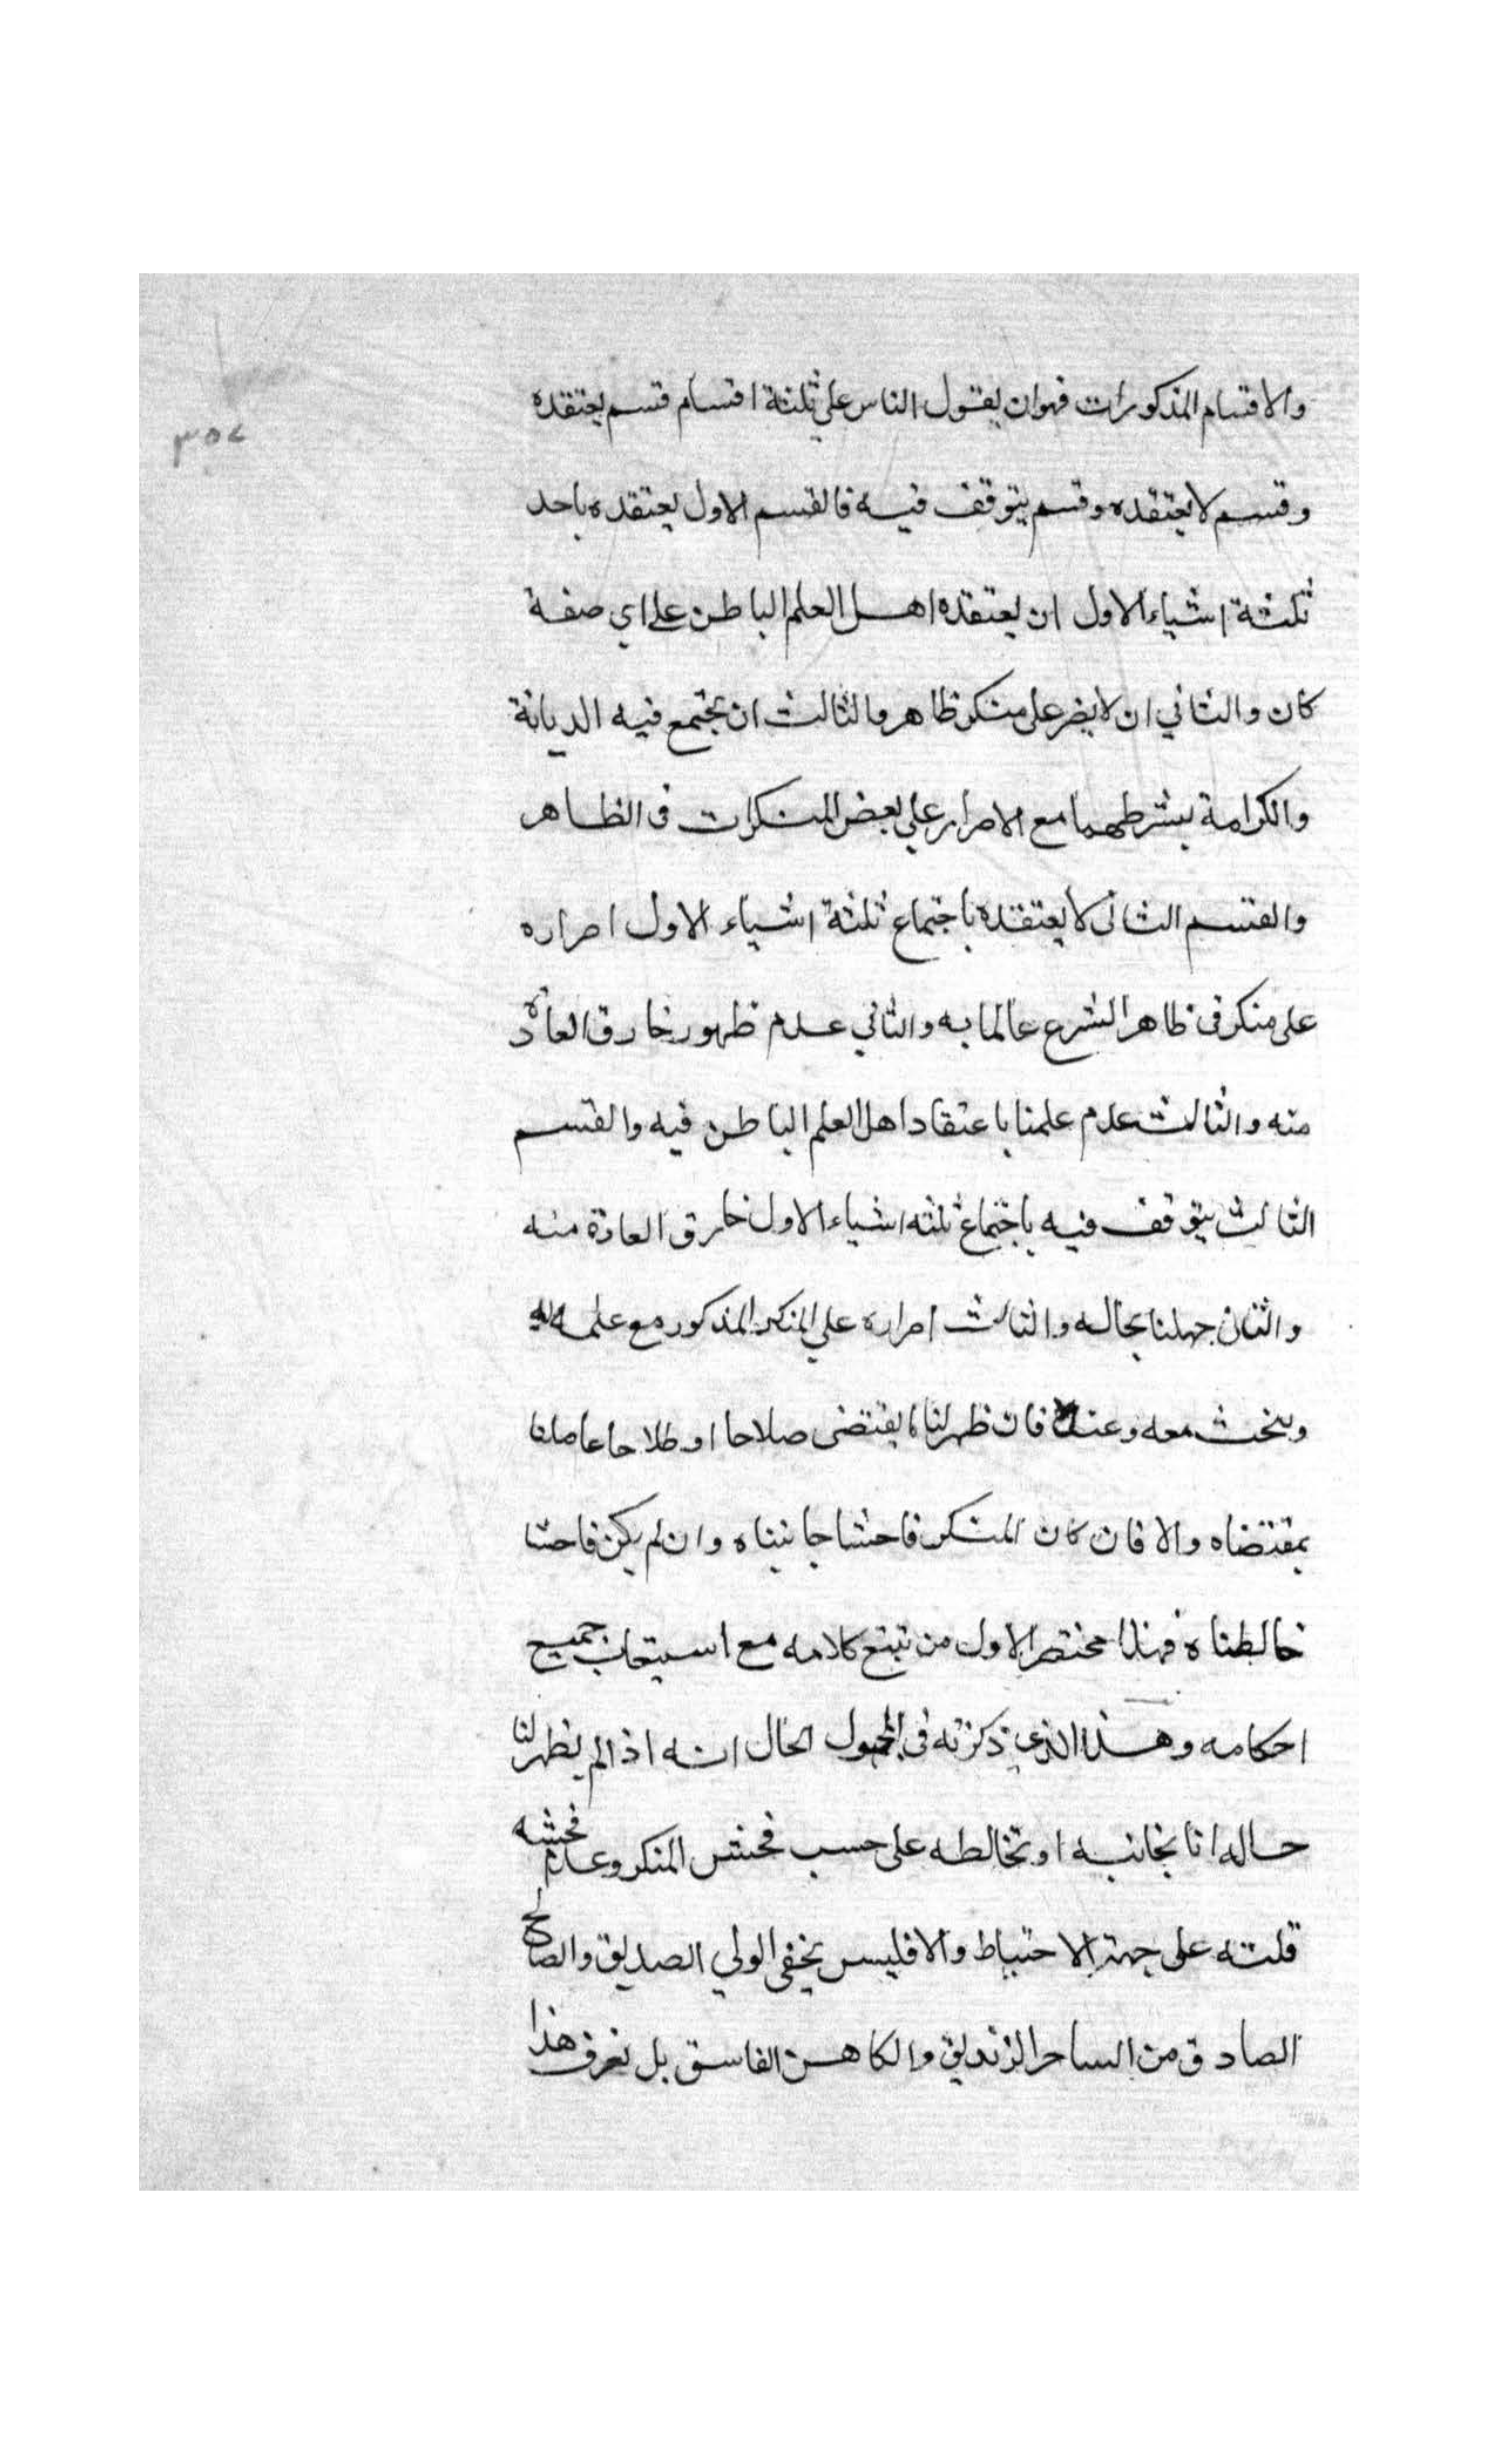 والاقسام المذكورات فهو ان يقول الناس على ثلثة اقسام قسم يعتقده
٣٥٧
وقسم لا يعتقده وقسم يتوقف فيه فالقسم الاول يعتقده باحد
ثلثة اشياء الاول ان يعتقده اهل العلم الباطن على اي صفة
كان والثاني ان لا يصر على منكر ظاهر والثالث ان يجتمع فيه الديانة
والكرامة بشرطهما مع الاصرار على بعض المنكرات في الظاهر
والقسم الثاني لا يعتقده باجتماع ثلثة اشياء الاول اصراره
على منكر في ظاهر الشرع عالما به والثاني عدم ظهور خارق العادة
منه والثالث عدم علمنا باعتقاد اهل العلم الباطن فيه والقسم
الثالث يتوقف فيه باجتماع ثلثه اشياء الاول خارق العادة منه
والثاني جهلنا بحاله والثالث اصراره على المنكر المذكور مع علمه به
ويبحث معه وعنه فان ظهر لنا ما يقتضى صلاحا او طلاحا عاملنا
بمقتضاه والا فان كان المنكر فاحشا جانبناه وان لم يكن فاحشا
خالطناه فهذا مختصر الاول من تتبع كلامه مع استيعاب جميع
احكامه وهذا الذي ذكرته في المجهول الحال انه اذا لم يظهر لنا
حاله انا نجانبه او نخالطه على حسب فحش المنكر وعدم فحشه
قلته على جهة الاحتياط والا فليس يخفى الولي الصديق والصالح
الصادق من الساحر الزنديق والكاهن الفاسق بل نعرف هذا